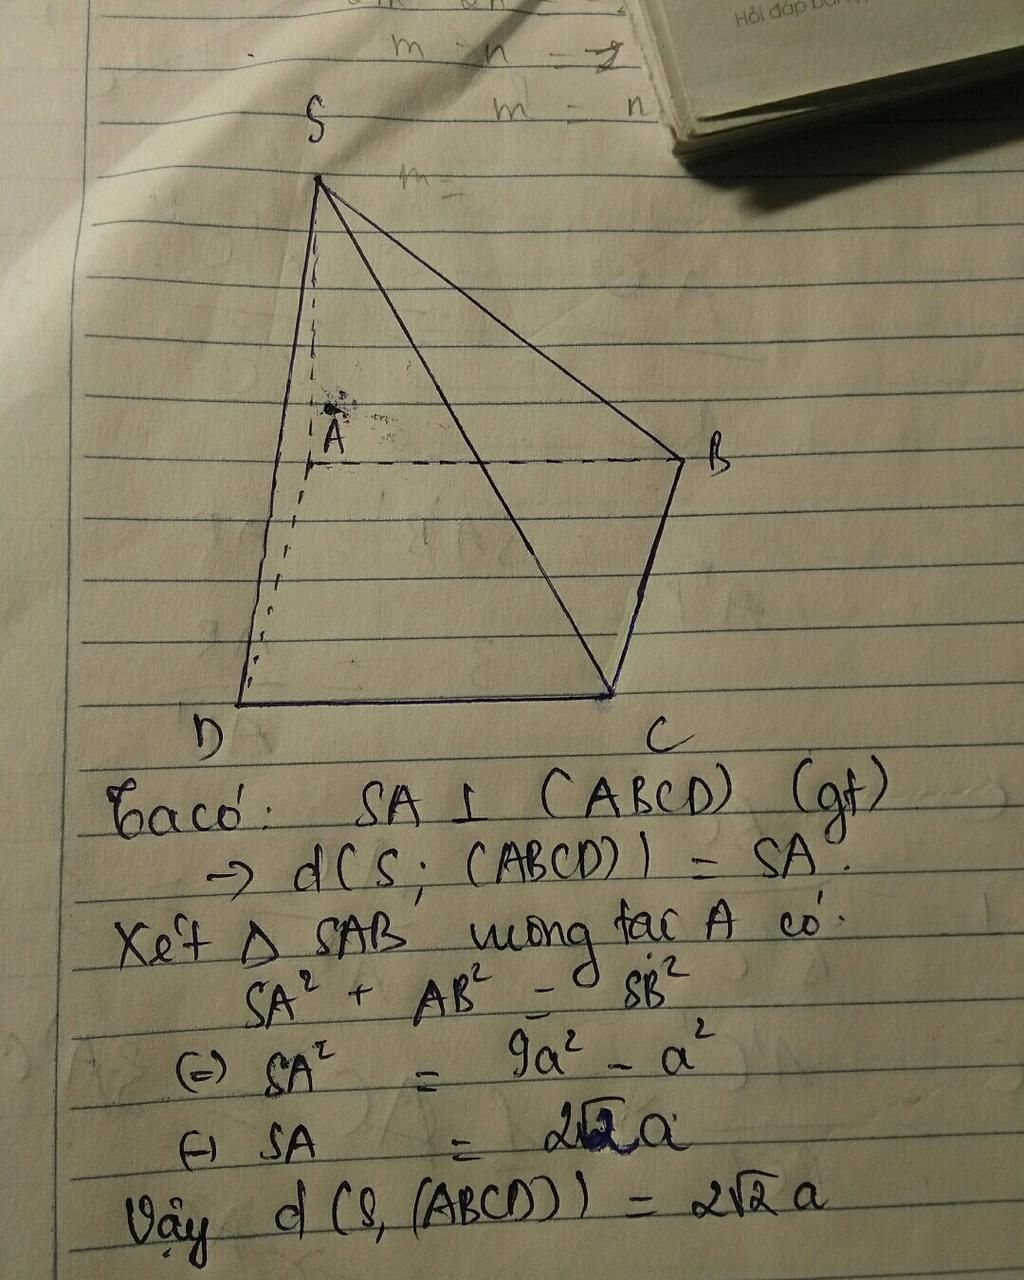 Hỏi đáp
m - n = -2
m = n
S
m =
A
B
D
C
Ta có: SA ⊥ (ABCD) (gt)
→ d(S; (ABCD)) = SA.
Xét Δ SAB vuông tại A có:
SA² + AB² = SB²
(=) SA² = 9a² - a²
(=) SA = 2√2 a
Vậy d (S, (ABCD)) = 2√2 a